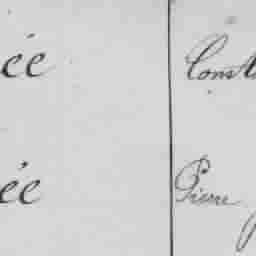 ée Const
ée Pierre